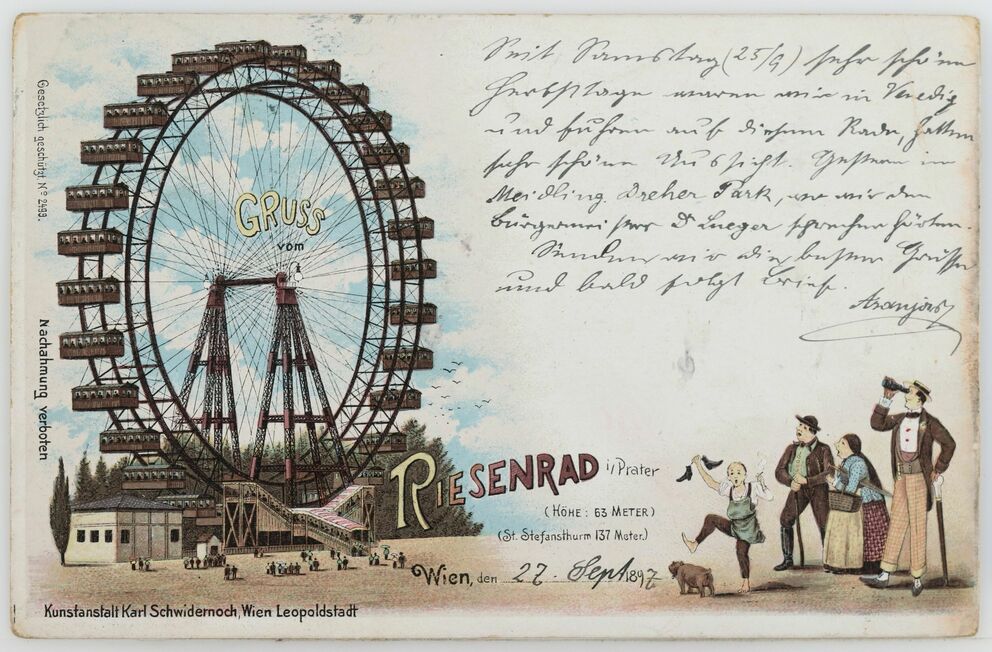 Seit Samstag (25/9) sehr schöne
Herbsttage waren wir in Venedig
und fuhren auf diesem Rade, hatten
sehr schöne Aussicht. Gestern in
Meidling Dreher Park, wo wir den
Bürgermeister Dr Lueger sprechen hörten.
Senden wir die besten Grüsse
und bald folgt Brief.
Gesetzlich geschützt No 2493.
Nachahmung verboten
GRUSS
vom
RIESENRAD i/Prater
(HÖHE: 63 METER)
(St. Stefansthurm 137 Meter.)
Wien, den 27. Sept 1897
Kunstanstalt Karl Schwidernoch, Wien Leopoldstadt